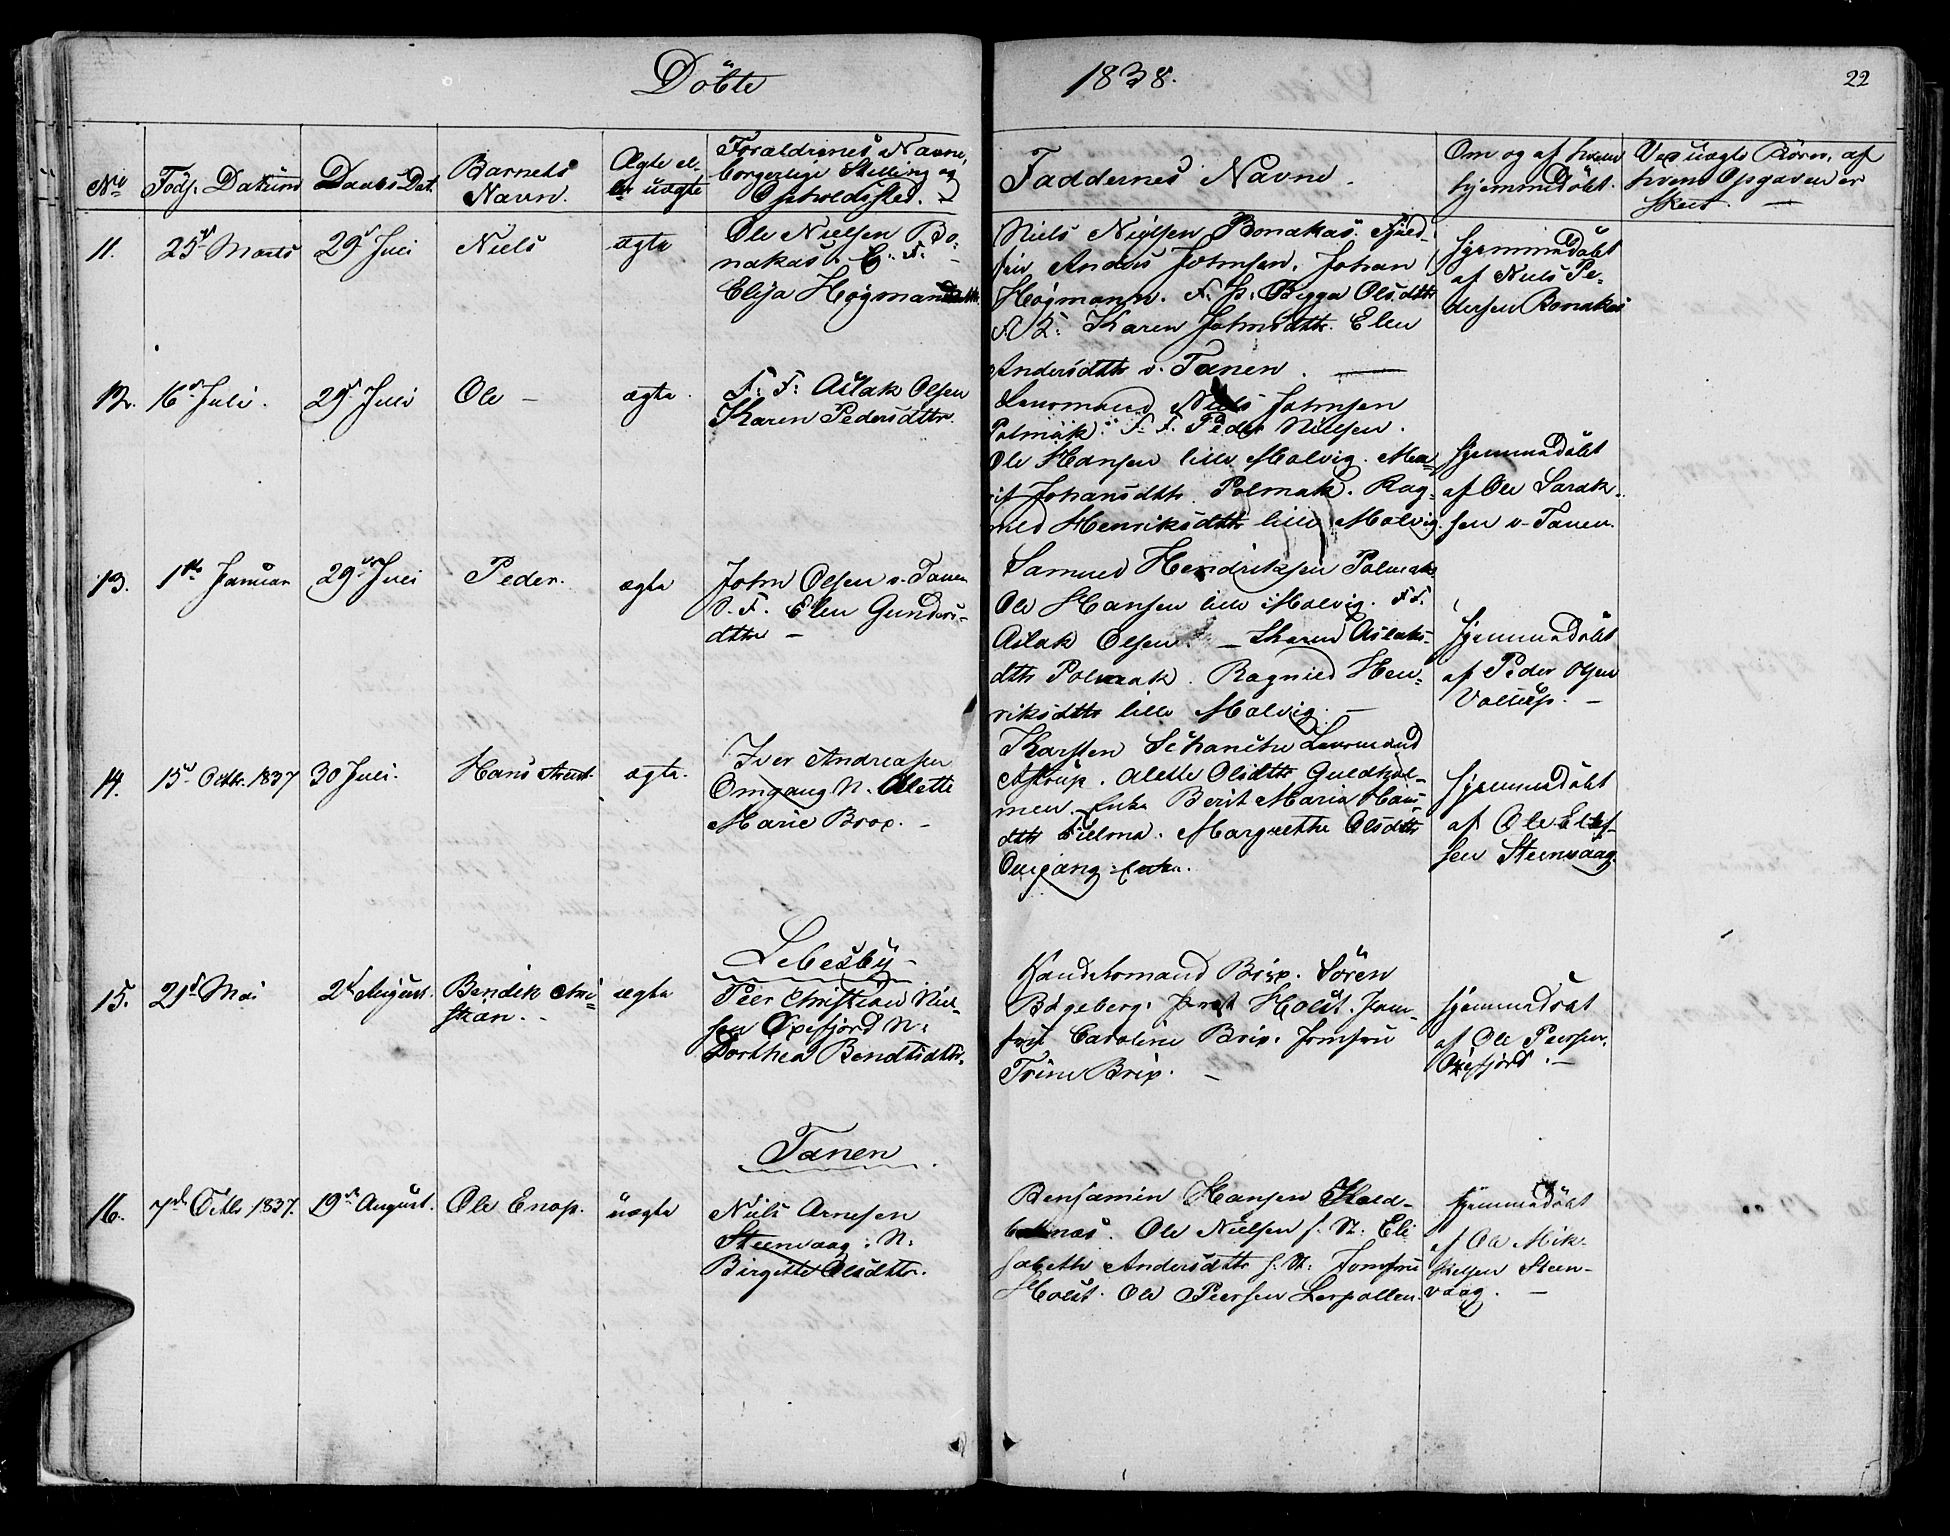 Döbte
1838.
22
No
Föds. Datum
Daabs Dat.
Barnets
Navn.
Ægte el-
ler uægte
Forældrenes Navne,
borgerlige Stilling og
Opholdssted.
Faddernes Navne.
Om og af hvem
hjemmedöbt.
Ved uægte Börn, af
hvem Opgaven er
skeet.
11.
25de Marts
29de Juli
Niels
ægte
Ole Nielsen Bo-
nakas. E. F.
Elisa Högman
Niels Nielsen Bonakas. Fjeld-
fin Anders Johnsen. Johan
Högmann. Bigga Olsdttr
Karen Johnsdttr. Elen
Andersdttr v. Tanen.
Hjemmedöbt
af Niels Pe-
dersen Bonakas
12.
16de Juli.
29de Juli
Ole
ægte.
F. F. Aslak Olsen
Karen Pedersdttr.
Lensmand Niels Johnsen
Polmak. F. F. Peder Nielsen.
Ole Hansen lille Molvig. Mar-
it Johansdttr Polmak. Rag-
nild Henriksdttr lille Molvig.
Hjemmedöbt
af Ole Sarak-
sen v. Tanen.
13.
1ste Januar
29de Juli
Peder.
ægte
John Olsen v. Tanen
Elen Gunders-
dttr
Samuel Hendriksen Polmak
Ole Hansen lille Molvig. F.F.
Aslak Olsen. Karen Aslaks-
dttr Polmak. Ragnild Hen-
riksdttr lille Molvig.
Hjemmedöbt
af Peder Olsen
14.
15de Octbr. 1837
30 Juli.
Hans
ægte.
Iver Andreasen
Omgang N. Alette
Marie Brox.
Karsten Schanche Lensmand
Astrup. Alette Olsdttr Guldhol-
men. Enke Berit Maria Hans-
dttr. Margrethe Olsdttr
Omgang Enke.
Hjemmedöbt
af Ole
sen Steenvaag
Lebesby
15.
21de Mai
2de August.
Bendik Chri-
stian.
ægte
Peer Christian Niel-
sen Oxefjord N.
Dorthea Bendtsdttr.
Handelsmand Brix. Sören
Bögeberg. Holst. Jom-
fru Caroline Brix. Jomfru
Trine Brix.
Hjemmedöbt
af Ole Peersen.
Oxefjord.
Tanen
16.
7de Octbr 1837.
19de August.
Ole Enok.
uægte
Niels Arnesen
Steenvaag. N.
Birgitte Olsdttr.
Benjamin Hansen Kald-
baknæs. Ole Nielsen f. St. Eli
sabeth Andersdttr f. St. Jomfru
Holst. Ole Peersen Lerpollen.
Hjemmedöbt
af Ole Mik-
kelsen Steen-
vaag.